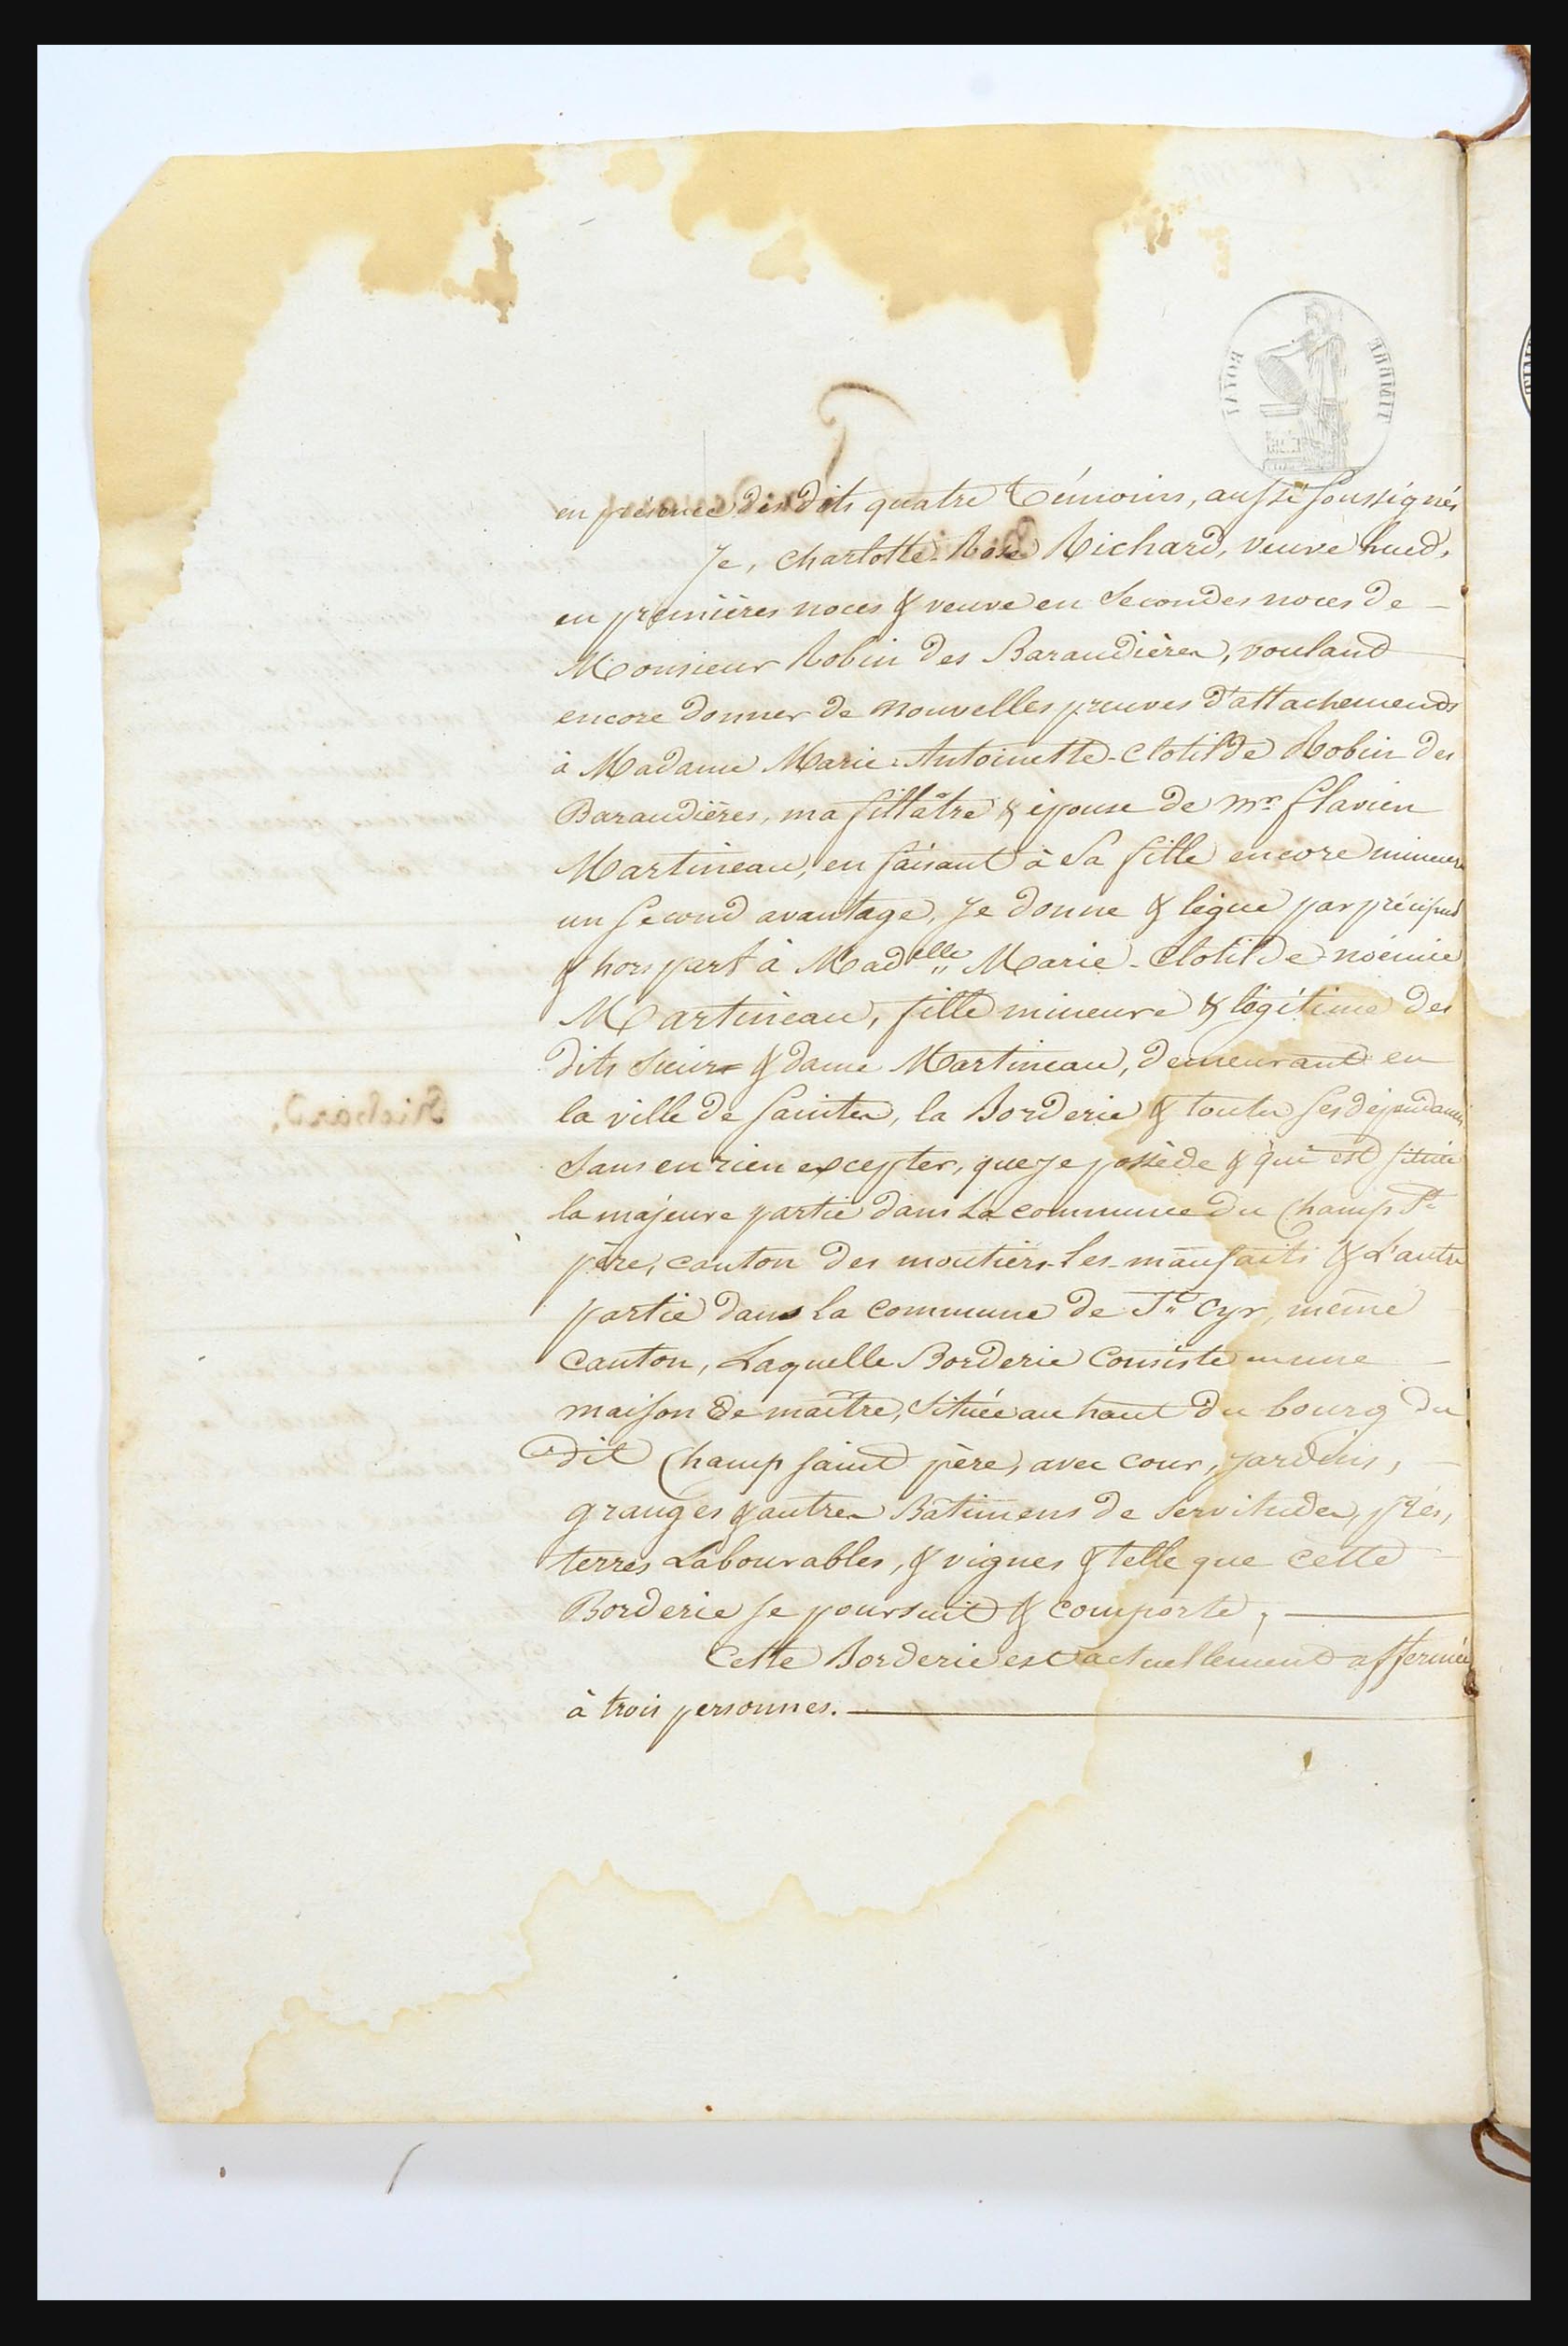 TIMBRE ROYAL
en présence des dits quatre témoins, aussi soussignés
Je, Charlotte-Rose Richard, veuve hued,
en premières noces & veuve en Secondes noces de
Monsieur Robin des Baraudières, voulant
encore donner de nouvelles preuves d'attachements
à Madame Marie-Antoinette-Clotilde Robin des
Baraudières, ma fillâtre & épouse de mr. flavien
Martineau, en faisant à Sa fille encore mineure
un second avantage, Je donne & légue par préciput
& hors part à Madelle Marie-Clotilde-noémie
Martineau, fille mineure & légitime des
dits Sieur & dame Martineau, demeurant en
la ville de Saintes, la Borderie & toutes ses dépendances
Sans en rien excepter, que je possède & qui est située
la majeure partie dans La commune du Champ St.
père, canton des moutiers-les-maufaits & L'autre
partie dans La Commune de St. Cyr, même
Canton, Laquelle Borderie Consiste en une
maison de maître, Située au haut du bourg du
dit Champ saint père, avec cour, jardins,
granges & autres Bâtimens de Servitudes, prés,
terres Labourables, & vignes & telle que cette
Borderie se poursuit & comporte,
Cette Borderie est actuellement affermée
à trois personnes.
Richard,